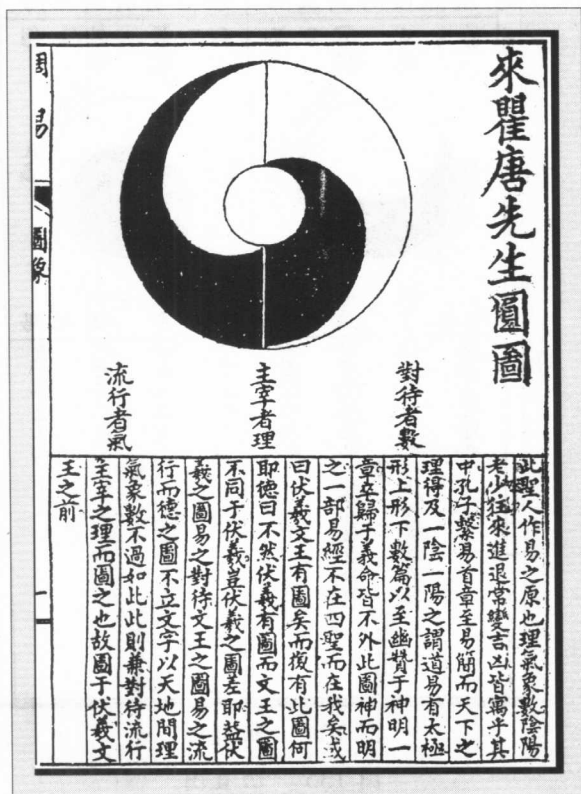 來瞿唐先生圓圖
對待者數
主宰者理
流行者氣
此聖人作易之原也理氣象數陰陽
老少往來進退常變吉凶皆寓乎其
中孔子繫易首章至易簡而天下之
理得及一陰一陽之謂道易有太極
形上形下數篇以至幽贊于神明一
章卒歸于義命皆不外此圖神而明
之一部易經不在四聖而在我矣或
曰伏羲文王有圖矣而復有此圖何
耶德曰不然伏羲有圖而文王之圖
不同于伏羲豈伏羲之圖差耶蓋伏
羲之圖易之對待文王之圖易之流
行而德之圖不立文字以天地間理
氣象數不過如此此則兼對待流行
主宰之理而圖之也故圖于伏羲文
王之前
周易
圖象